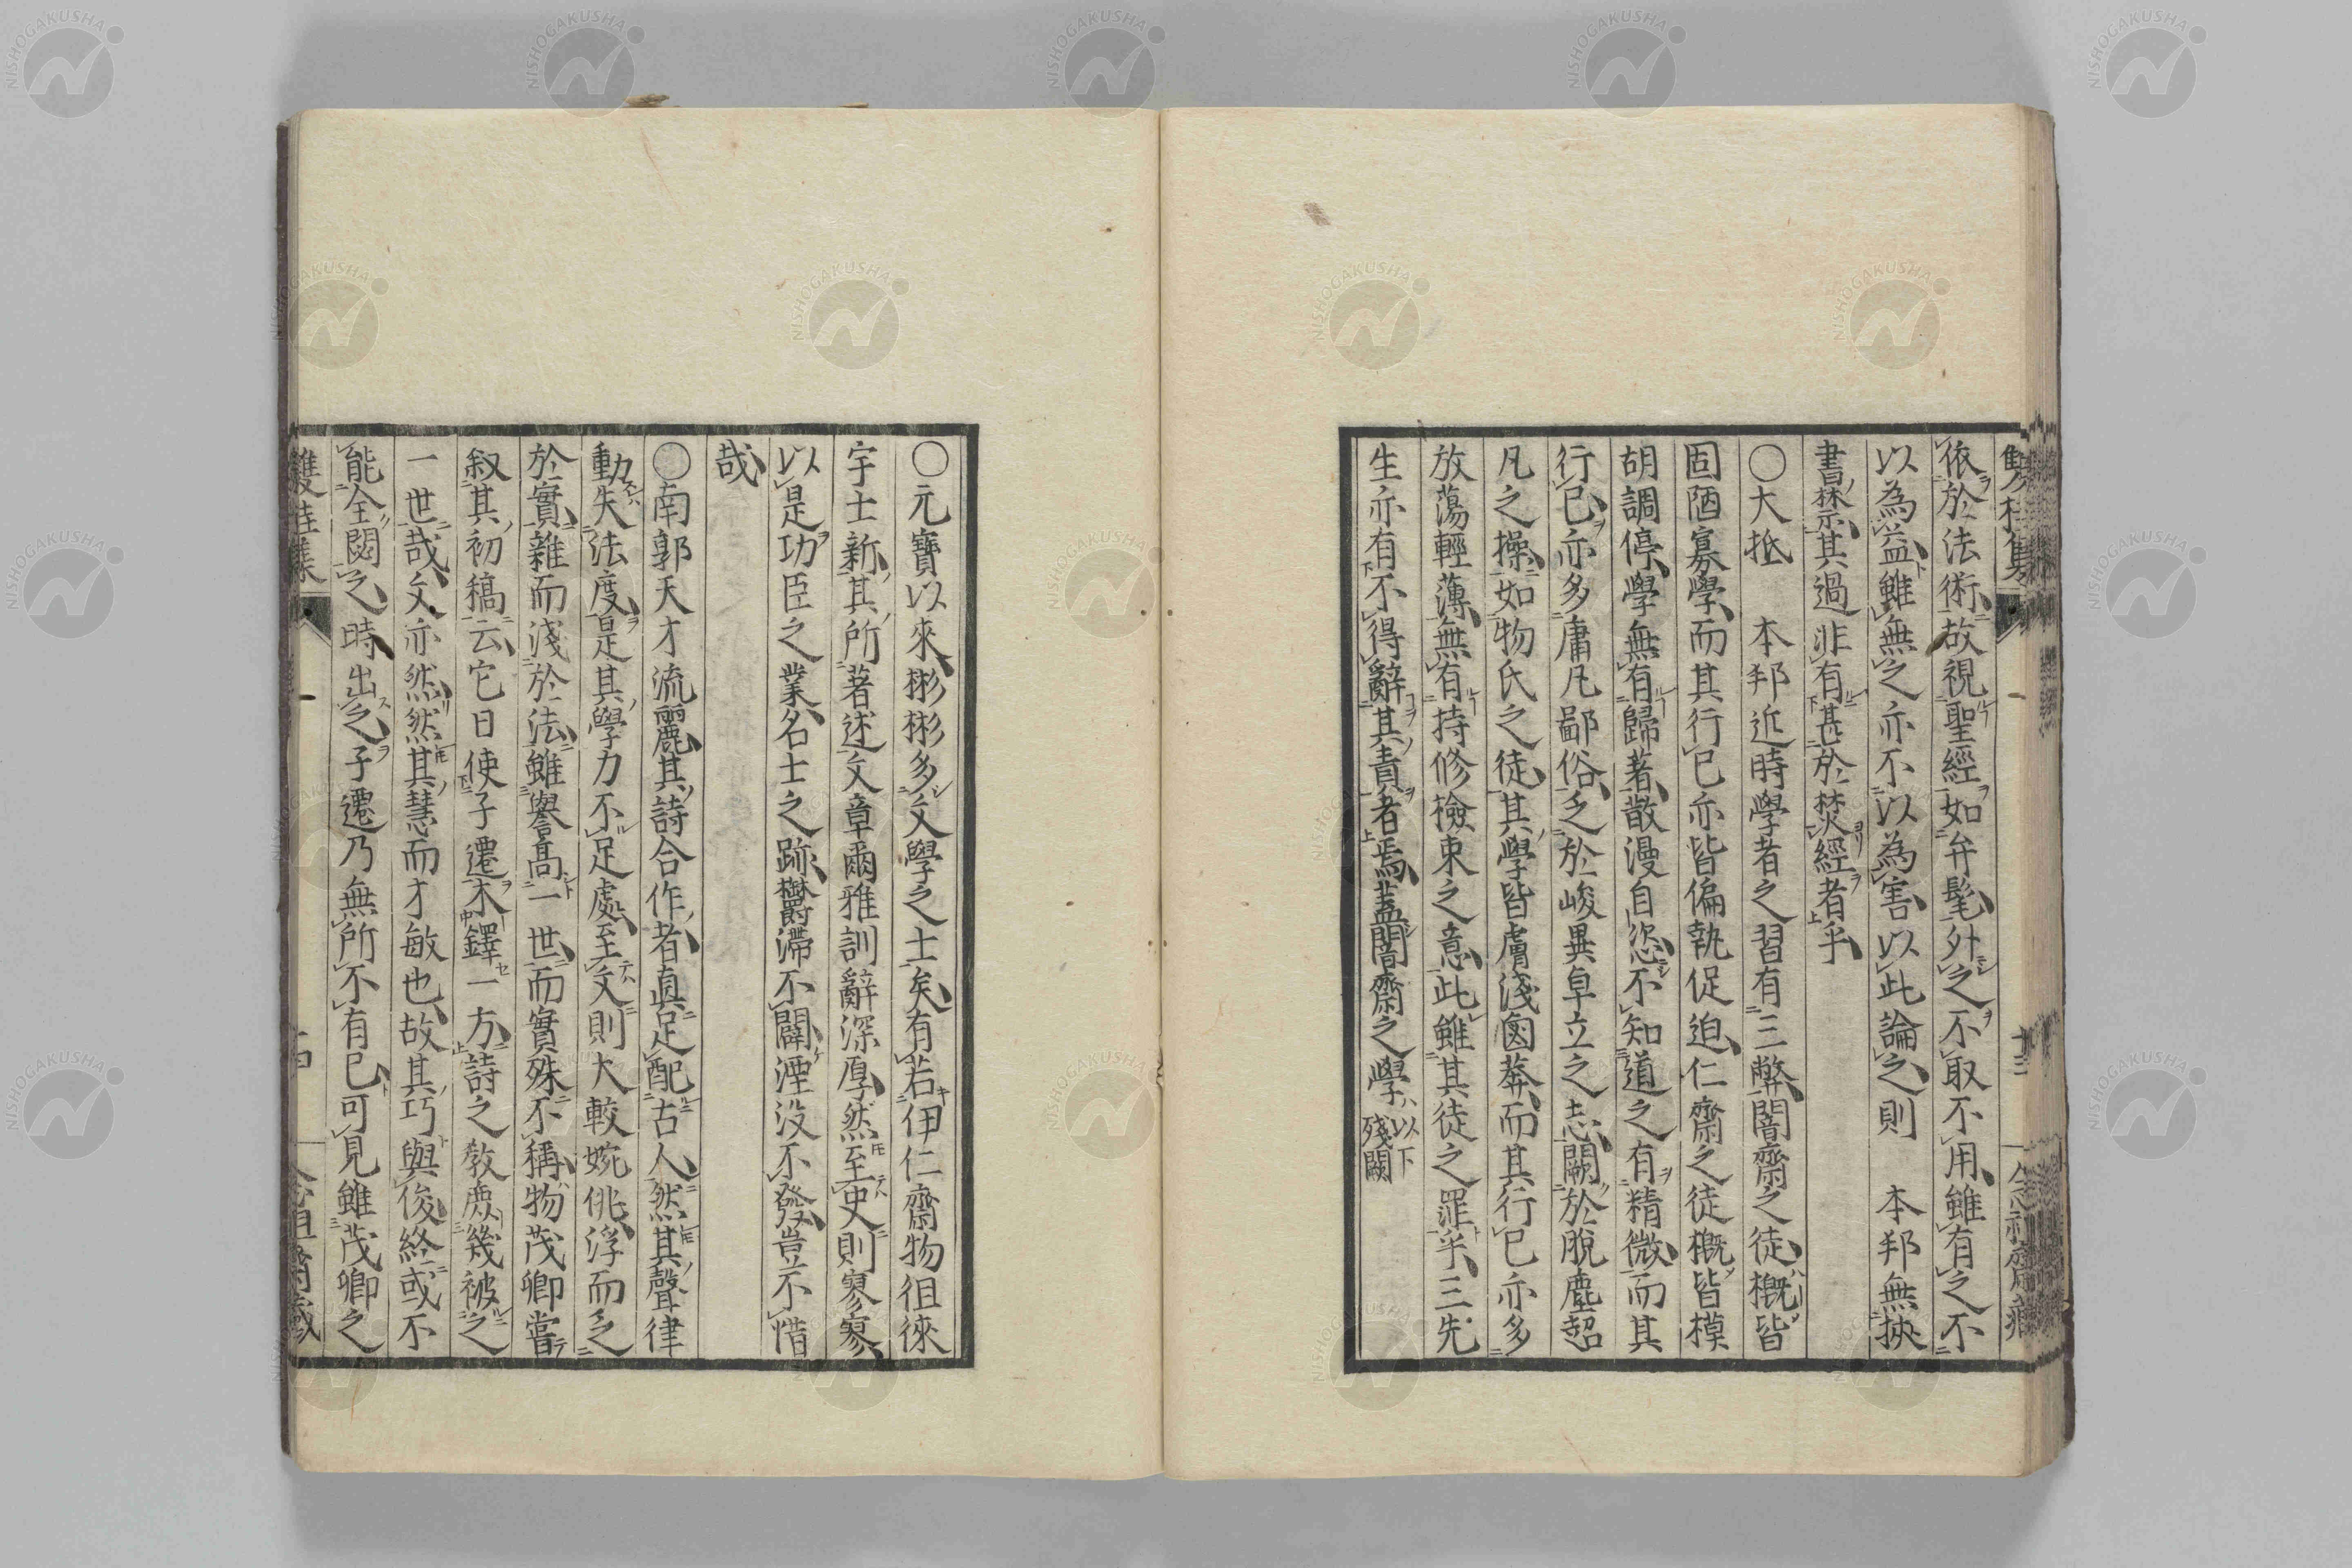 依於法術、故視聖經如弁髦、外之不取不用、雖有之不
以為益、雖無之亦不以為害、以此論之、則 本邦無挾
書禁、其過非有甚於焚經者乎、
〇大抵 本邦近時學者之習有三弊、闇齋之徒、概皆
固陋寡學、而其行已亦皆偏執促迫、仁齋之徒概皆模
胡調停、學無有歸著、散漫自恣、不知道之有精微、而其
行已、亦多庸凡鄙俗、乏於峻異卓立之志、闕於脫塵超
凡之操、如物氏之徒、其學皆膚淺鹵莽、而其行已亦多
放蕩輕薄、無有持修檢束之意、此雖其徒之罪乎、三先
生亦有不得辭其責者焉、蓋闇齋之學 以下殘闕
〇元寶以來、彬彬多文學之士矣、有若伊仁齋物徂徠
宇士新、其所著述文章爾雅訓辭深厚、然至史則寥寥、
以是功臣之業、名士之跡、欝滯不闢、湮没不發、豈不惜
哉、
〇南郭天才流麗、其詩合作者、真足配古人、然其聲律
動失法度、是其學力不足處、至文則大較婉佻、浮而乏
於實、雜而淺於法、雖譽髙一世、而實殊不稱、物茂卿嘗
叙其初稿云、它日使子遷木鐸一方、詩之教庶幾被之
一世哉、文亦然、然其慧而才敏也、故其巧與俊終或不
能全閟之、時出之、子遷乃無所不有已、可見雖茂卿之